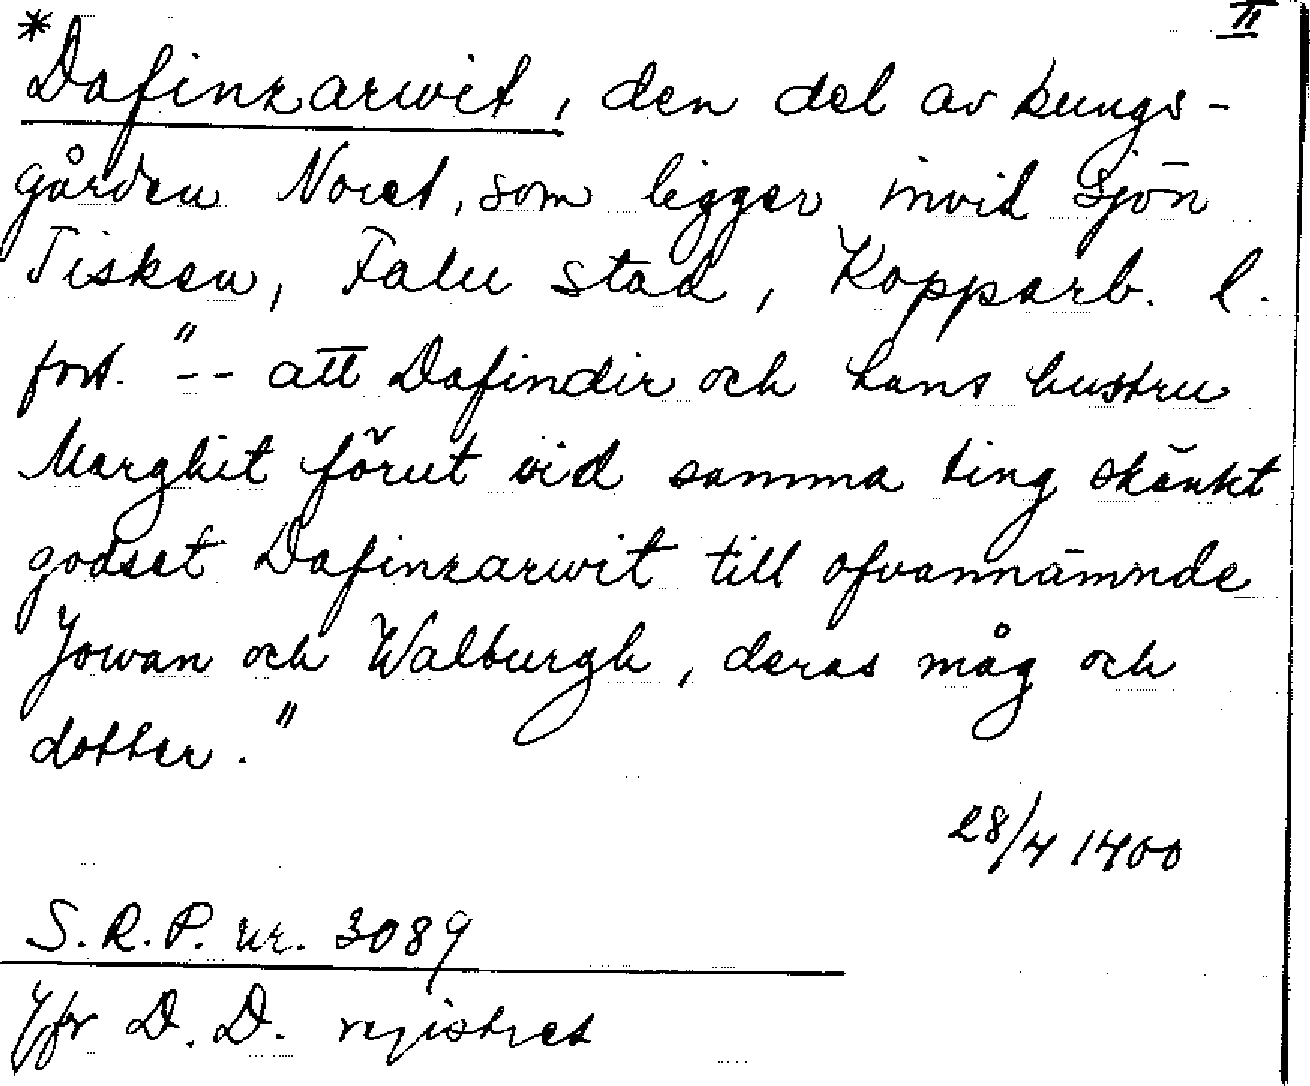 II
*Dafinzarwit, den del av kungs-
gården Noret, som ligger invid sjön
Tisken, Falu stad, Kopparb. l.
fort. "-- att Dafindir och hans hustru
Marghit förut vid samma ting skänkt
godset Dafinzarwit till ofvannämnde
Jowan och Walburgh, deras måg och
dotter."
28/4 1400
S.R.P. nr. 3089
Jfr D.D. registret